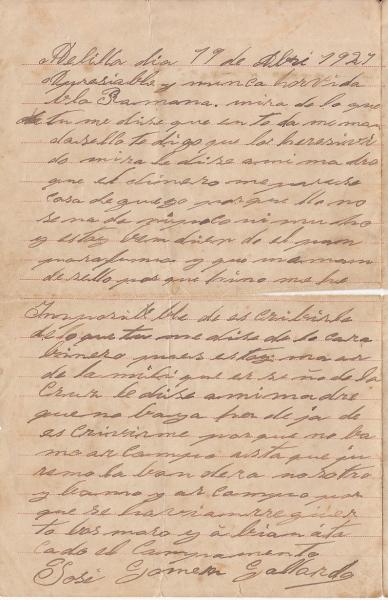 Melilla dia 19 de Abri 1921
Apresiable y nunca horvida
bla Ramana. mira de lo que
tu me dise que en to da me man
da sello te digo que lo he resivi
do mira le dise a mi madre
que el dinero me puse
cosa de guego porque llo no
se na de ni poco ni mucho
y estoy bendien do el pan
para fuma y que me man
de sello por que si no me he
Imposible de es cribirle
de lo que tu me dise de lo cara
binero pues estoy mas ar
de la mili que er se ño de la
Cruz le dise a mi madre
que no baya ha de ja de
es crivirme porque no ba
mo ar campo asta que ju
remo la bandera nosotro
y bamo y ar campo por
que se havian regüer
to los moro y a bian ata
cado el Campamento
José Gomez Gallardo